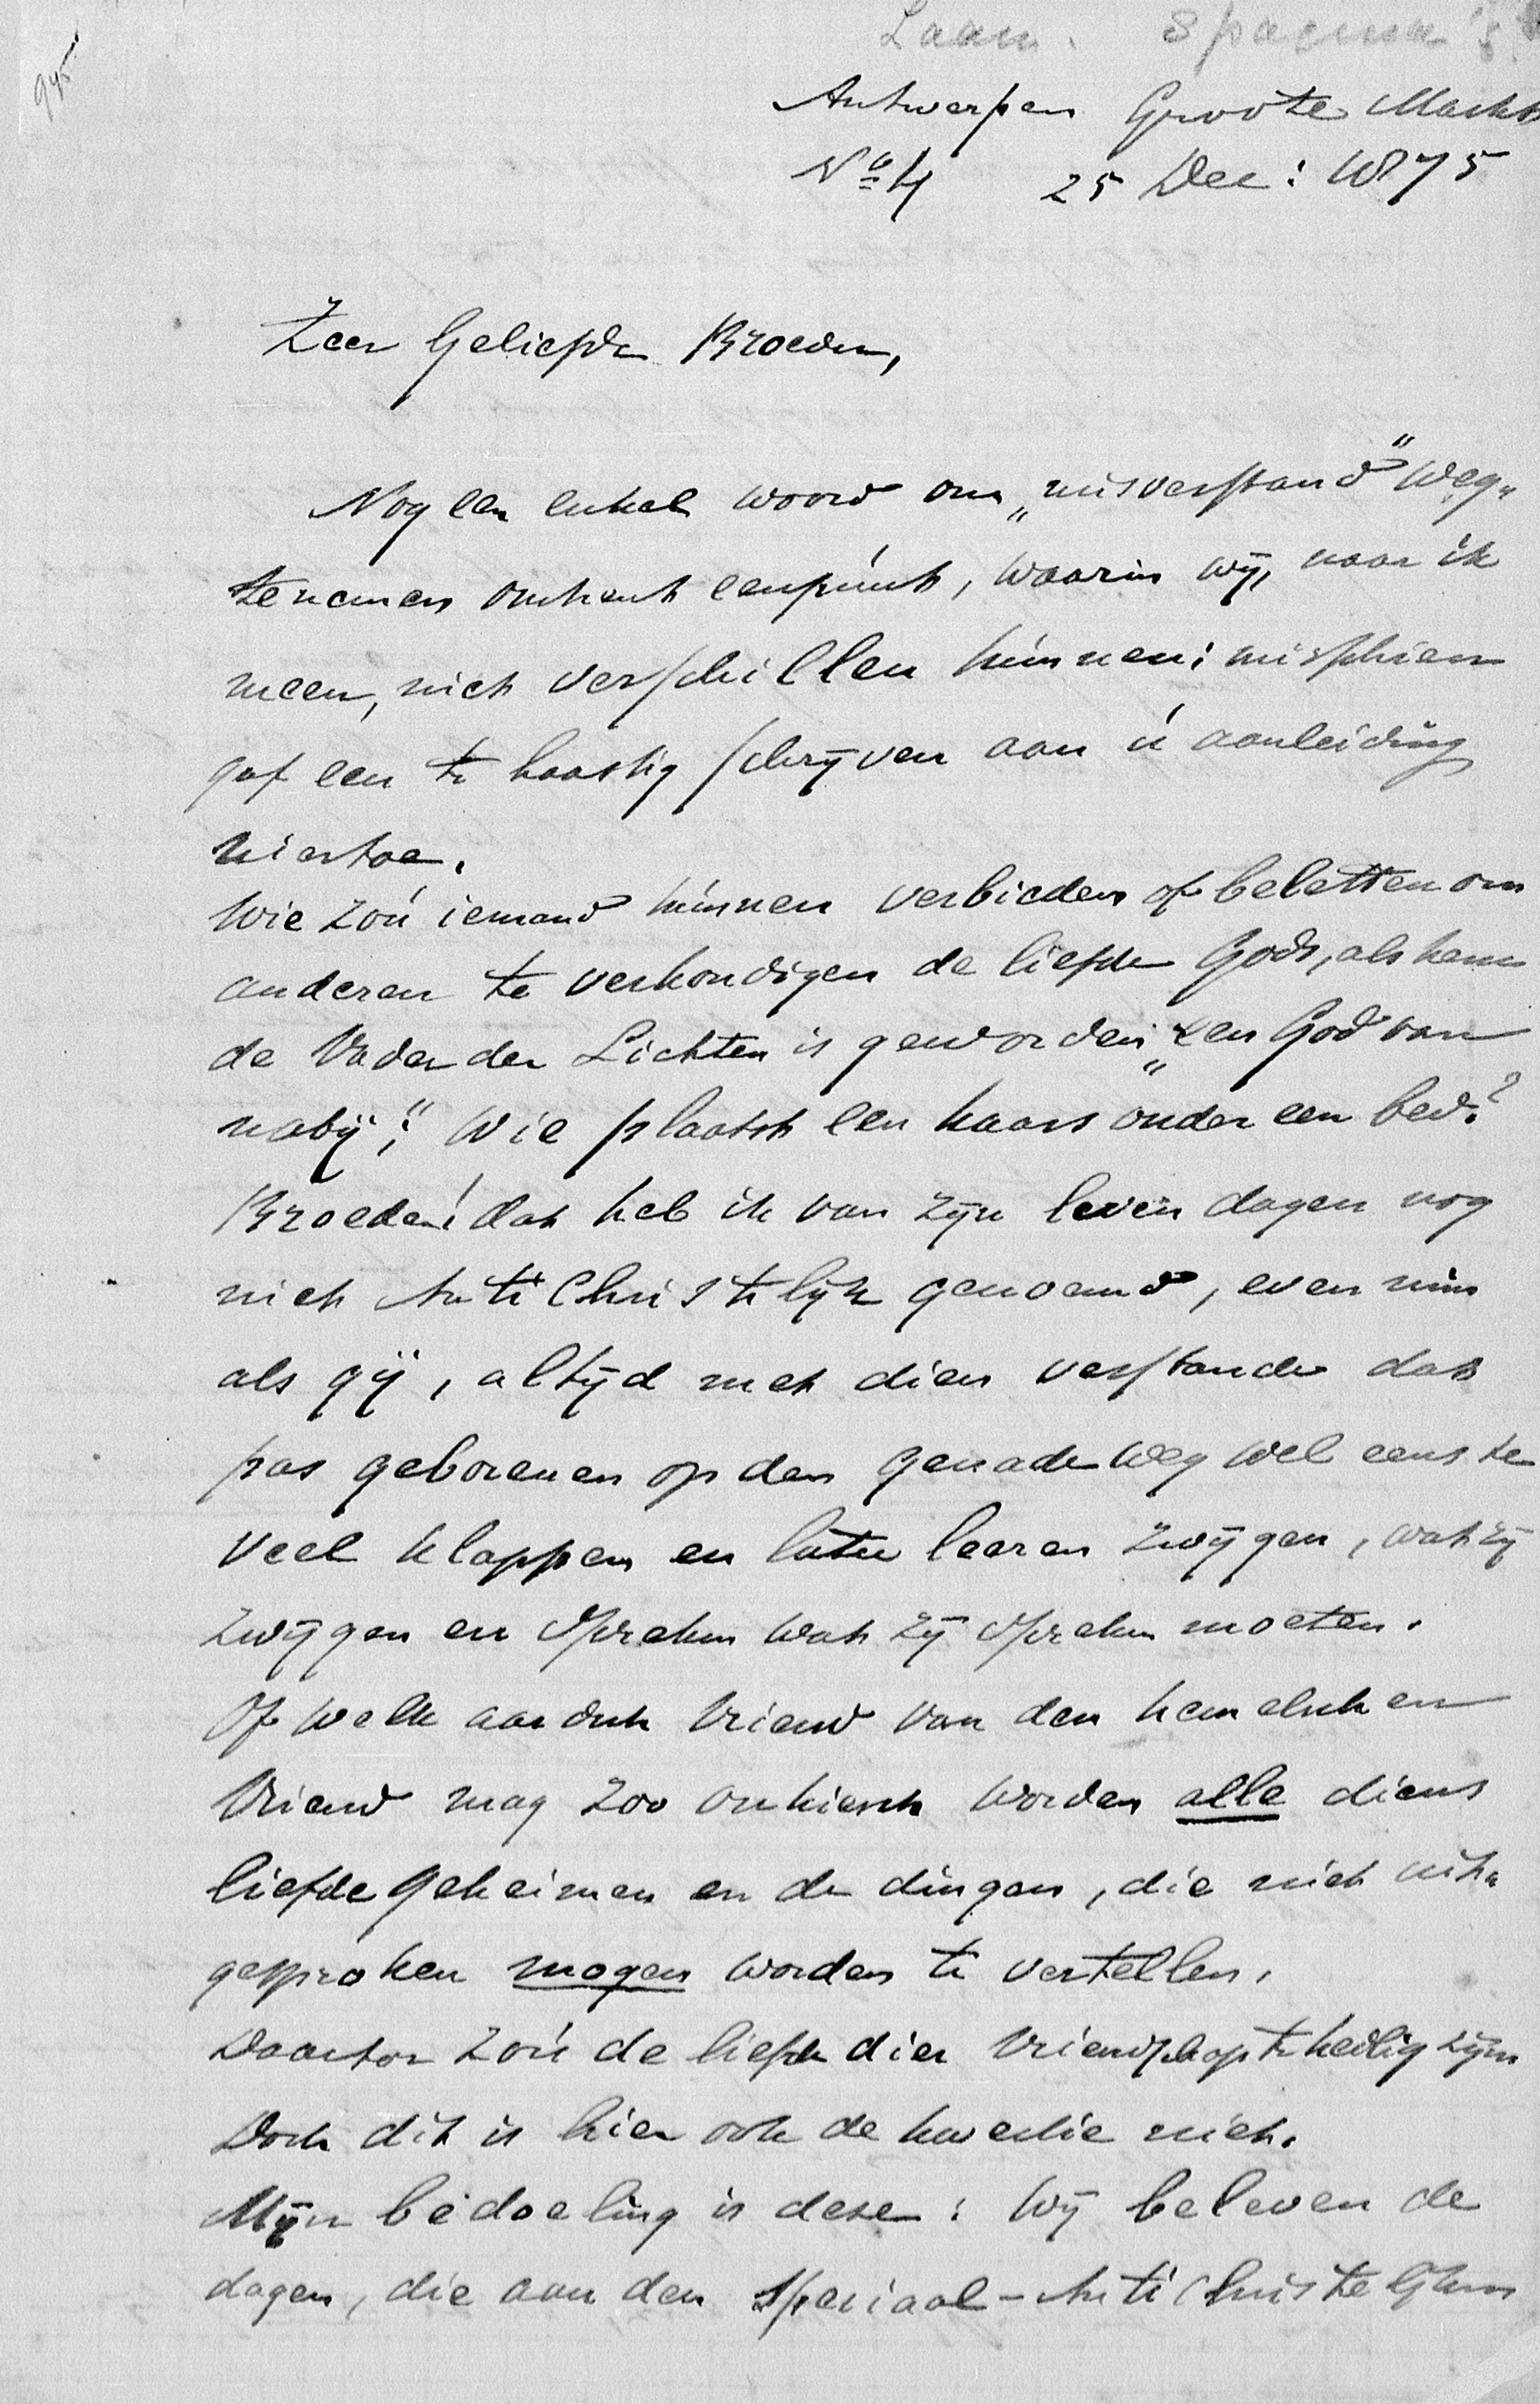 945
Laan.
Antwerpen Groote Markt
No 4 25 Dec: 1875
Zeer Geliefde Broeder,
Nog een enkel woord om „misverstand" weg„
te nemen omtrent een punt, waarin wij, naar ik
meen, niet verschillen kunnen; misschien
gaf een te haastig schrijven aan ú aanleiding
hiertoe.
Wie zoú iemand kúnnen verbieden of beletten om
anderen te verkondigen de liefde Gods, als hem
de Vader der Lichten is geworden „een God van
nabij;" Wie plaatst een kaars onder een bed?
Broeder! dat heb ik van zijn leven dagen nog
niet AntiChristelijk genoemd, even min
als gij, altijd met dien verstande dat
pas geborenen op den genadeweg wel eens te
veel klappen en later leeren zwijgen, wat zij
zwijgen en spreken wat zij spreken moeten.
Of welk aardsch Vriend van den hemelschen
Vriend mag zoo onkiesch worden alle diens
liefdegeheimen en de dingen, die niet uit„
gesproken mogen worden te vertellen.
Daartoe zoú de liefde dier Vriendschap te heilig zijn
Doch dit is hier ook de kwestie niet.
Mijn bedoeling is deze: Wij beleven de
dagen, die aan den Speciaal-AntiChristelijken